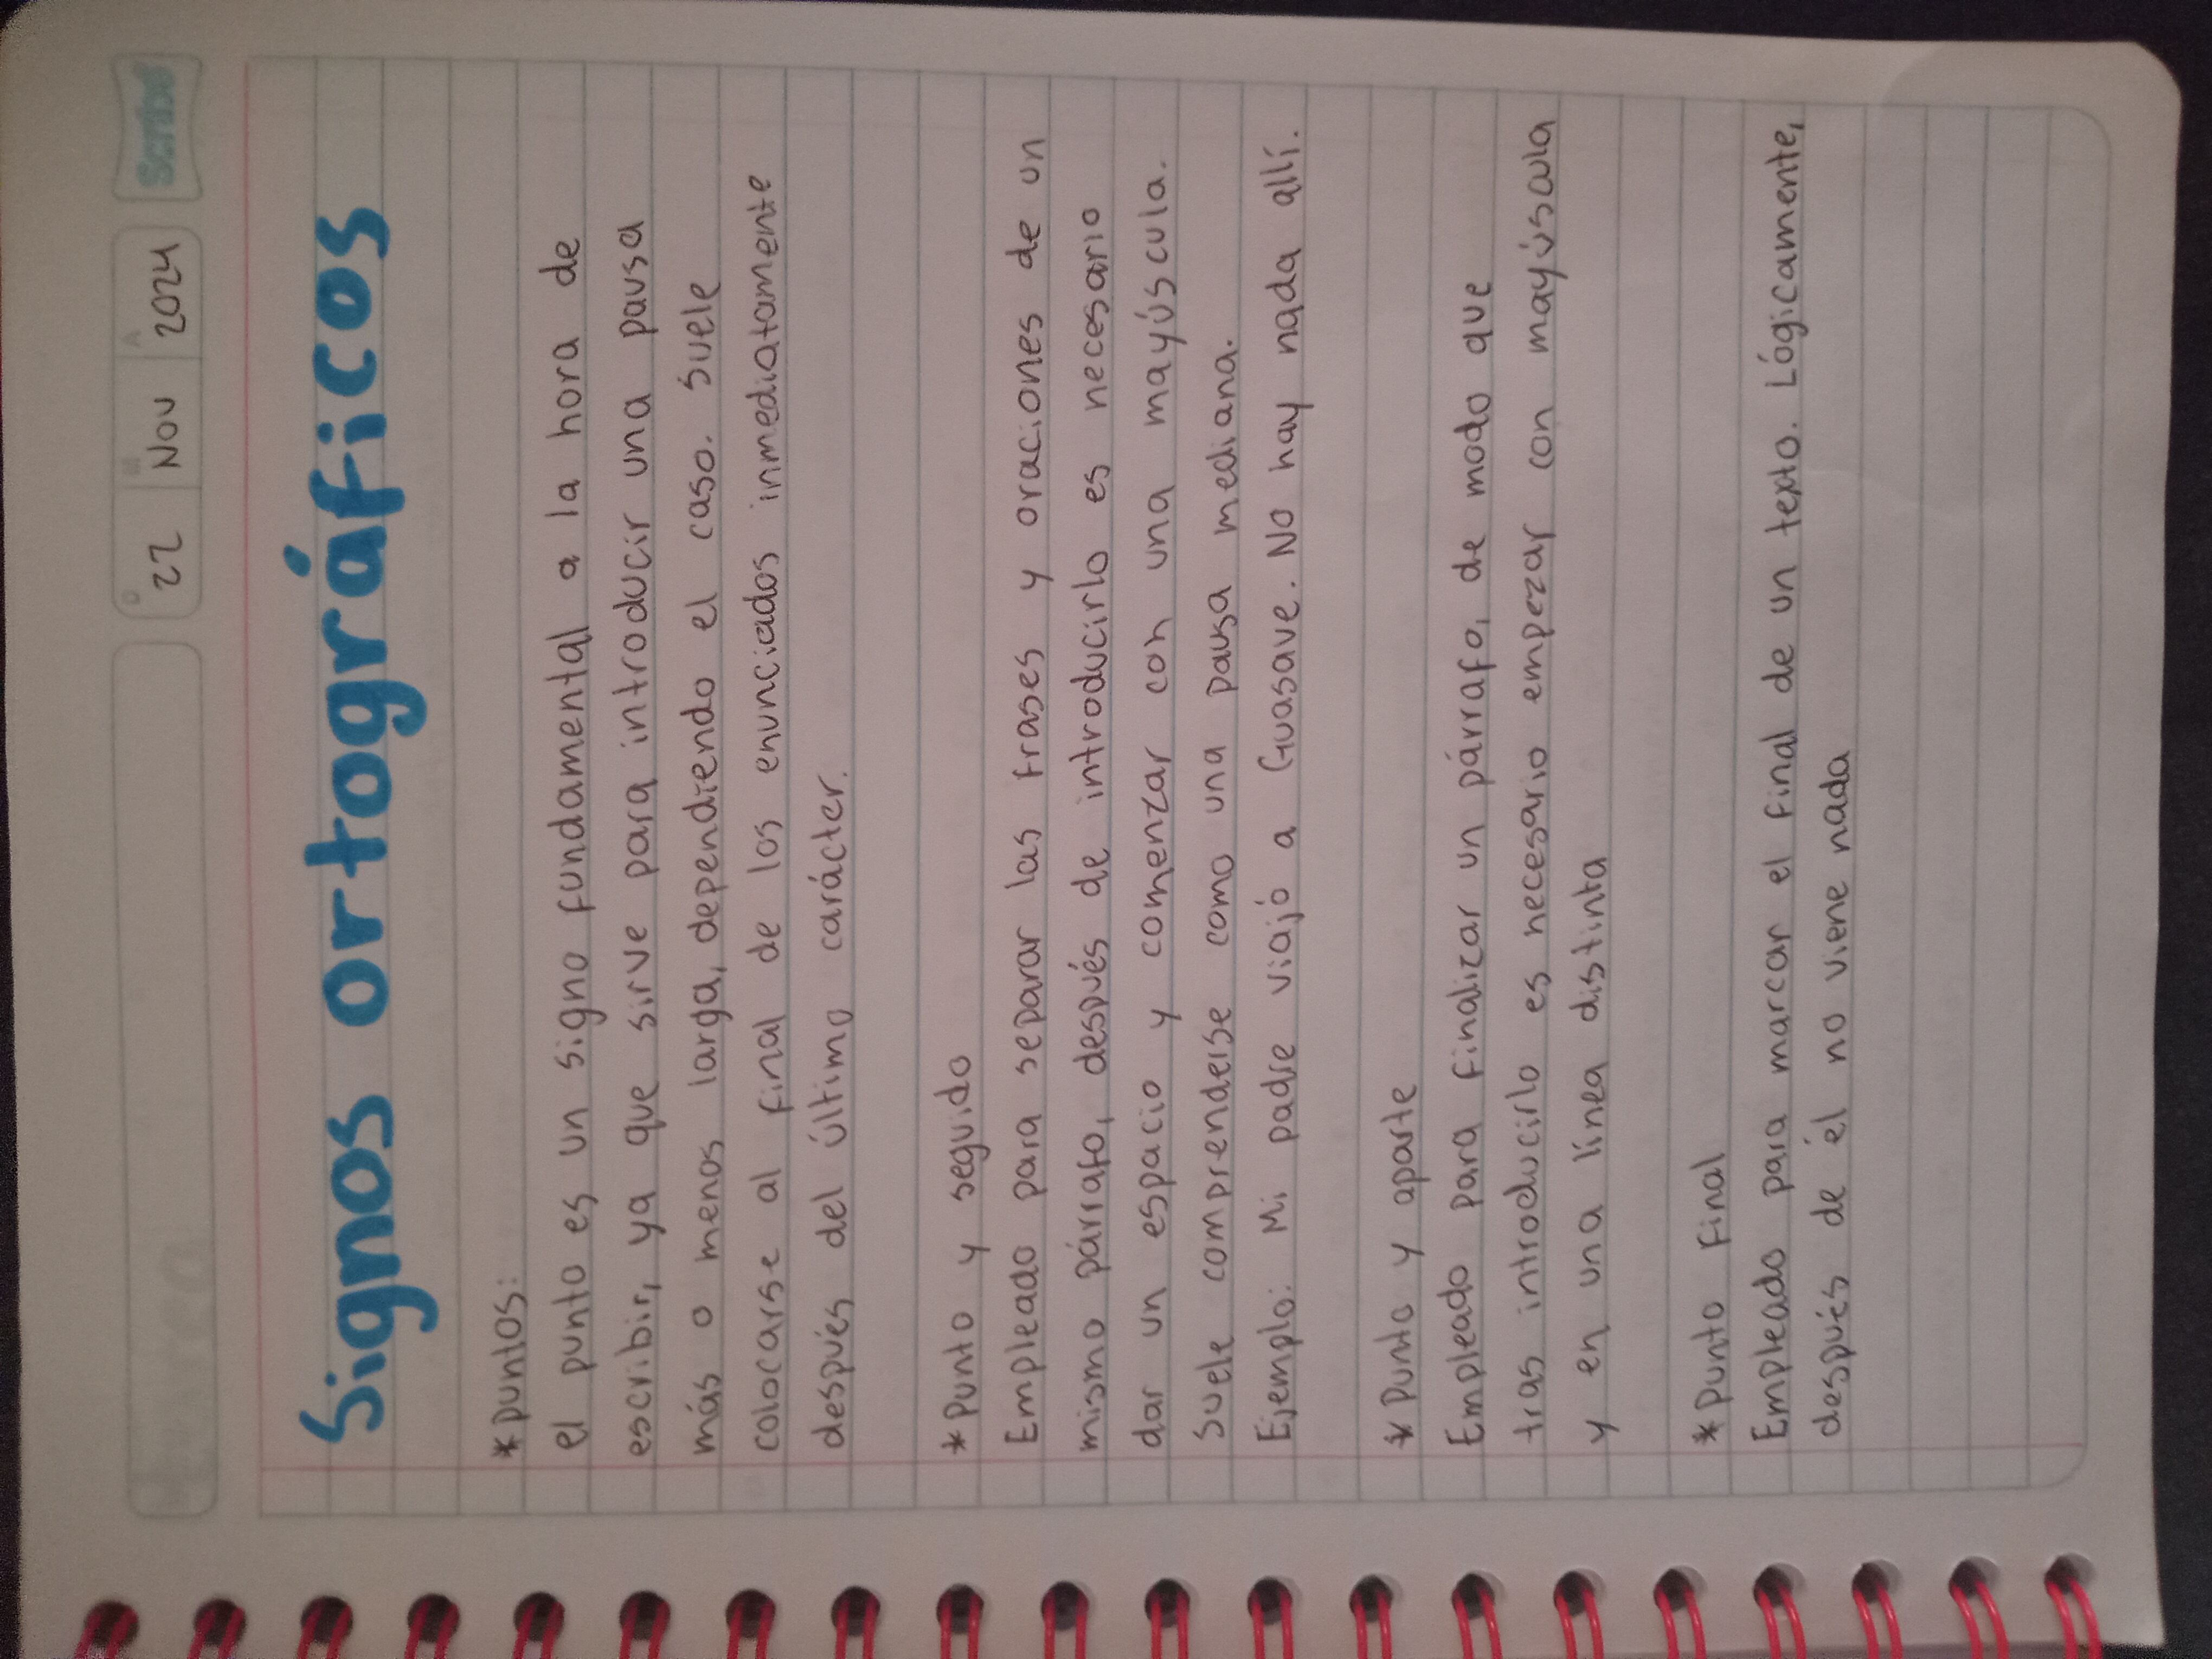 22 Nov 2024 Scribe
Signos ortográficos
*puntos:
el punto es un signo fundamental a la hora de
escribir, ya que sirve para introducir una pausa
más o menos larga, dependiendo el caso. Suele
colocarse al final de los enunciados inmediatamente
después del último carácter.
*Punto y seguido
Empleado para separar las frases y oraciones de un
mismo párrafo, después de introducirlo es necesario
dar un espacio y comenzar con una mayúscula.
Suele comprenderse como una pausa mediana.
Ejemplo: Mi padre viajó a Guasave. No hay nada allí.
*Punto y aparte
Empleado para finalizar un párrafo, de modo que
tras introducirlo es necesario empezar con mayúscula
y en una línea distinta
*Punto final
Empleado para marcar el final de un texto. Lógicamente,
después de él no viene nada